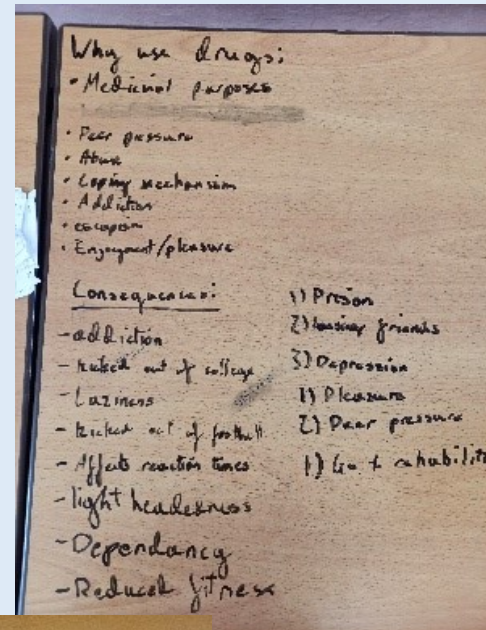 Why use drugs:
• Medicinal purposes
• Peer pressure
• Abuse
• Coping mechanism
• Addiction
• escapism
• Enjoyment/pleasure
Consequences:
- addiction
- kicked out of college
- Laziness
- kicked out of football
- Affects reaction times
- light headedness
- Dependancy
- Reduced fitness
1) Prison
2) loosing friends
3) Depression
1) Pleasure
2) Peer pressure
1) Go to